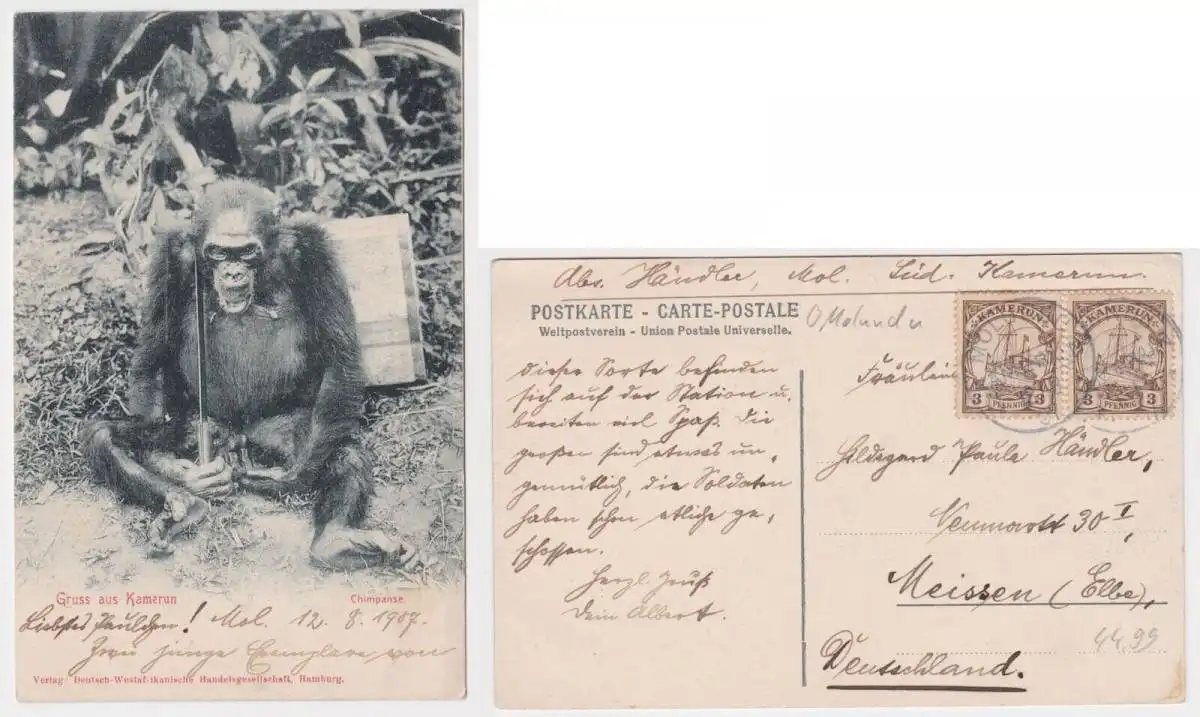 Gruss aus Kamerun
Chimpanse.
Liebstes Paulchen! Mol. 12. 8. 1907.
Zwei junge Exemplare von
Verlag: Deutsch-Westafrikanische Handelsgesellschaft, Hamburg.
Abs. Händler, Mol. Süd. Kamerun.
POSTKARTE - CARTE-POSTALE
Weltpostverein - Union Postale Universelle.
O Molundu
KAMERUN KAMERUN
3 PFENNIG 3 3 PFENNIG 3
dieser Sorte befinden
sich auf der Station u.
bereiten viel Spaß. Die
großen sind etwas un-
gemütlich, die Soldaten
haben schon etliche ge-
schossen.
Herzl. Gruß
Dein Albert.
Fräulein
Hildegard Paula Händler,
Neumarkt 30 I,
Meissen (Elbe),
Deutschland.
44.99